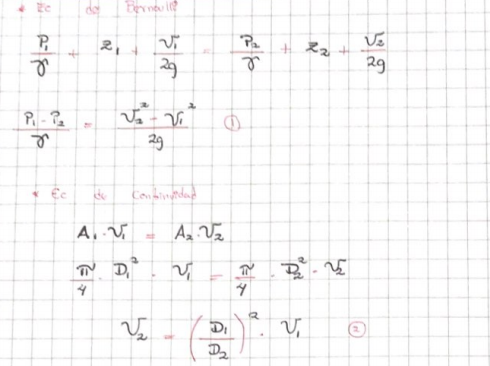 * Ec de Bernoulli
P₁/γ + z₁ + V₁/2g = P₂/γ + z₂ + V₂/2g
P₁ - P₂/γ = V₂² - V₁²/2g ①
* Ec de Continuidad
A₁ · V₁ = A₂ · V₂
π/4 · D₁² · V₁ = π/4 · D₂² · V₂
V₂ = (D₁/D₂)² · V₁ ②